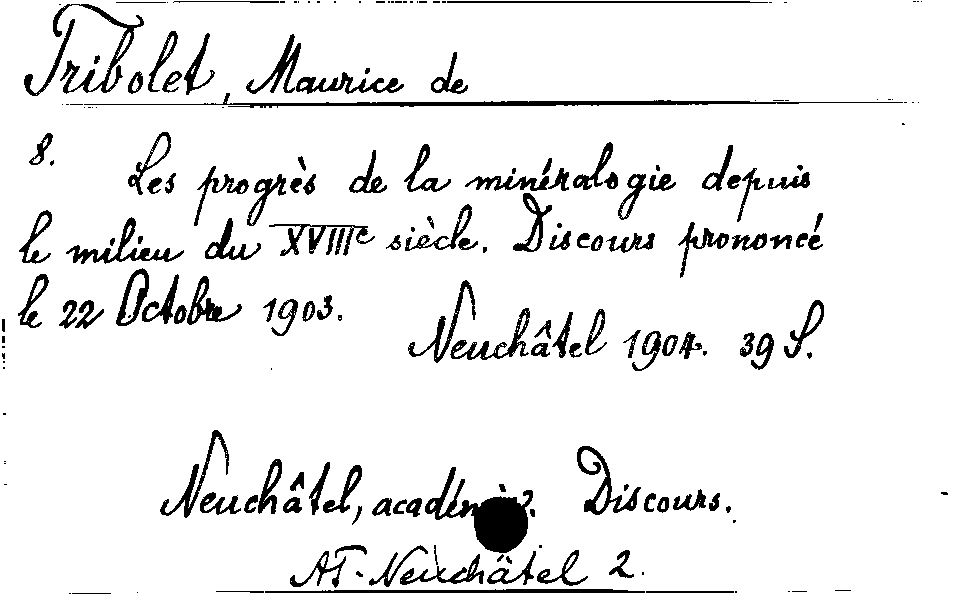 Tribolet, Maurice de
8. Les progrès de la minéralogie depuis
le milieu du XVIIIe siècle. Discours prononcé
le 22 Octobre 1903.
Neuchâtel 1904. 39 S.
Neuchâtel, Discours.
AT-Neuchâtel 2.